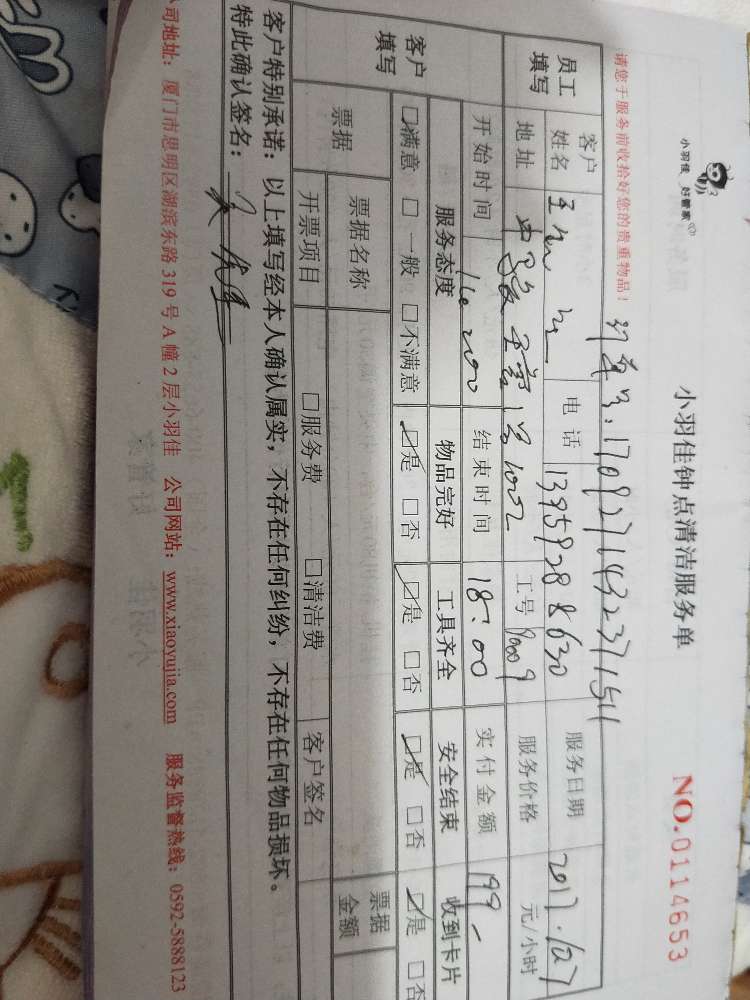 小羽佳 好管家
小羽佳钟点清洁服务单
NO.0114653
请您于服务前收拾好您的贵重物品！
1709271432371511
员工填写 客户姓名 电话 13959288630 服务日期
地址 1002 工号 9009 服务价格 元/小时
开始时间 结束时间 18:00 实付金额 199
客户填写 服务态度 物品完好 工具齐全 安全结束 收到卡片
□满意 □一般 □不满意 □是 □否 □是 □否 □是 □否 □是 □否
票据 票据名称 票据金额
开票项目 □服务费 □清洁费 客户签名
客户特别承诺：以上填写经本人确认属实，不存在任何纠纷，不存在任何物品损坏。
特此确认签名：
司地址：厦门市思明区湖滨东路 319 号 A 幢 2 层小羽佳 公司网站：www.xiaoyujia.com 服务监督热线：0592-5888123